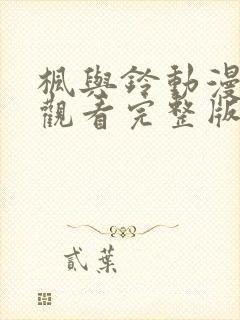 楓與鈴動漫
觀看完整版
貳葉